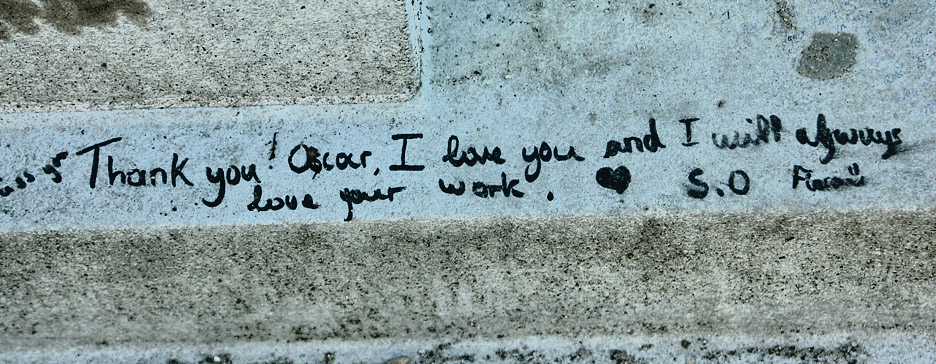 Thank you! Oscar, I love you and I will always
love your work. ♥ S.O